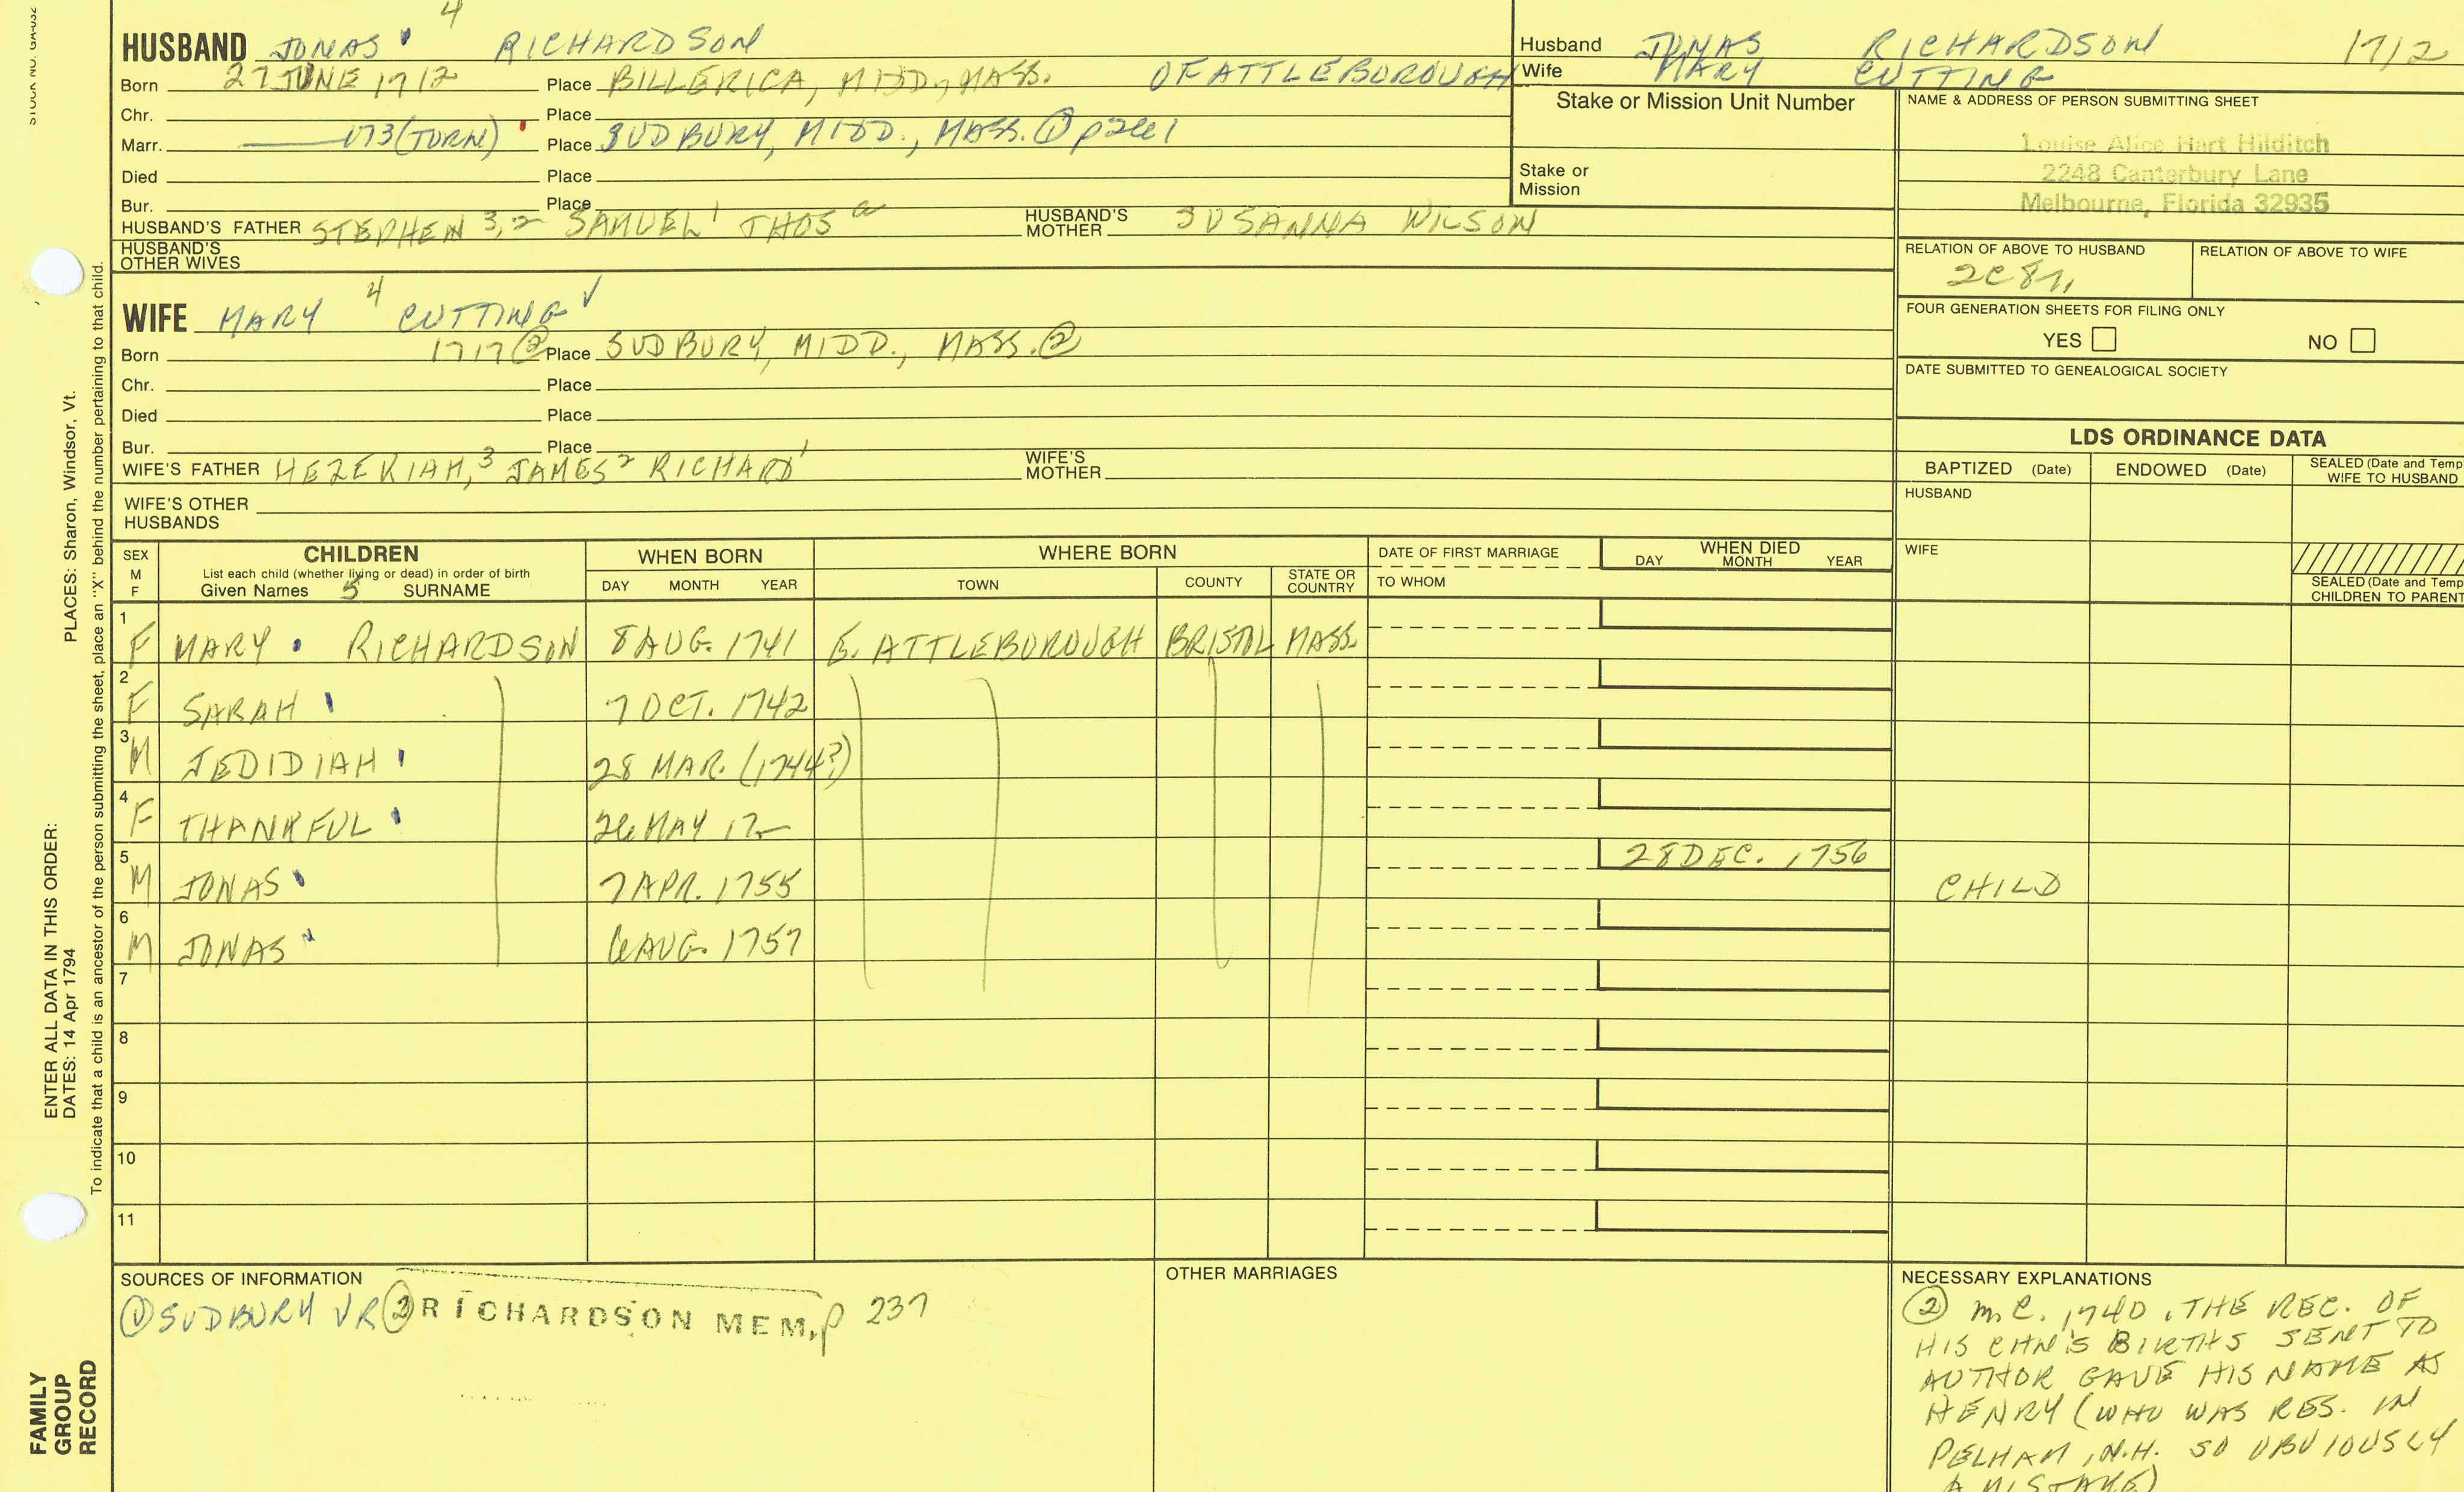 STOCK NO. GA-032
4
HUSBAND JONAS RICHARDSON
Born 27 JUNE 1712 Place BILLERICA, MIDD., MASS. OF ATTLEBOROUGH
Chr. Place
Marr. 173(TORN) Place SUDBURY, MIDD., MASS. ① p261
Died Place
Bur. Place
HUSBAND'S FATHER STEPHEN 3, 2 SAMUEL 1 THOS HUSBAND'S MOTHER SUSANNA WILSON
HUSBAND'S OTHER WIVES
WIFE MARY 4 CUTTING
Born 1717 ② Place SUDBURY, MIDD., MASS. ②
Chr. Place
Died Place
Bur. Place
WIFE'S FATHER HEZEKIAH, 3 JAMES 2 RICHARD 1 WIFE'S MOTHER
WIFE'S OTHER HUSBANDS
Husband JONAS RICHARDSON 1712
Wife MARY CUTTING
Stake or Mission Unit Number
Stake or Mission
NAME & ADDRESS OF PERSON SUBMITTING SHEET
Louise Alice Hart Hilditch
2248 Canterbury Lane
Melbourne, Florida 32935
RELATION OF ABOVE TO HUSBAND RELATION OF ABOVE TO WIFE
FOUR GENERATION SHEETS FOR FILING ONLY
YES NO
DATE SUBMITTED TO GENEALOGICAL SOCIETY
LDS ORDINANCE DATA
BAPTIZED (Date) ENDOWED (Date) SEALED (Date and Temp
WIFE TO HUSBAND
HUSBAND
WIFE
SEALED (Date and Temp
CHILDREN TO PARENT
SEX M F
CHILDREN
List each child (whether living or dead) in order of birth
Given Names 5 SURNAME
WHEN BORN
DAY MONTH YEAR
WHERE BORN
TOWN COUNTY STATE OR COUNTRY
DATE OF FIRST MARRIAGE
TO WHOM
WHEN DIED
DAY MONTH YEAR
1 F MARY RICHARDSON 8 AUG. 1741 E. ATTLEBOROUGH BRISTOL MASS.
2 F SARAH 7 OCT. 1742
3 M JEDIDIAH 28 MAR. (1744?)
4 F THANKFUL 26 MAY 17—
5 M JONAS 7 APR. 1755 28 DEC. 1756 CHILD
6 M JONAS 6 AUG. 1757
7
8
9
10
11
SOURCES OF INFORMATION
① SUDBURY VR ② RICHARDSON MEM, p 237
OTHER MARRIAGES
NECESSARY EXPLANATIONS
② m. C. 1740, THE REC. OF
HIS CHN'S BIRTHS SENT TO
AUTHOR GAVE HIS NAME AS
HENRY (WHO WAS RES. IN
PELHAM, N.H. SO OBVIOUSLY
A MISTAKE)
PLACES: Sharon, Windsor, Vt.
ENTER ALL DATA IN THIS ORDER:
DATES: 14 Apr 1794
To indicate that a child is an ancestor of the person submitting the sheet, place an "X" behind the number pertaining to that child.
FAMILY
GROUP
RECORD